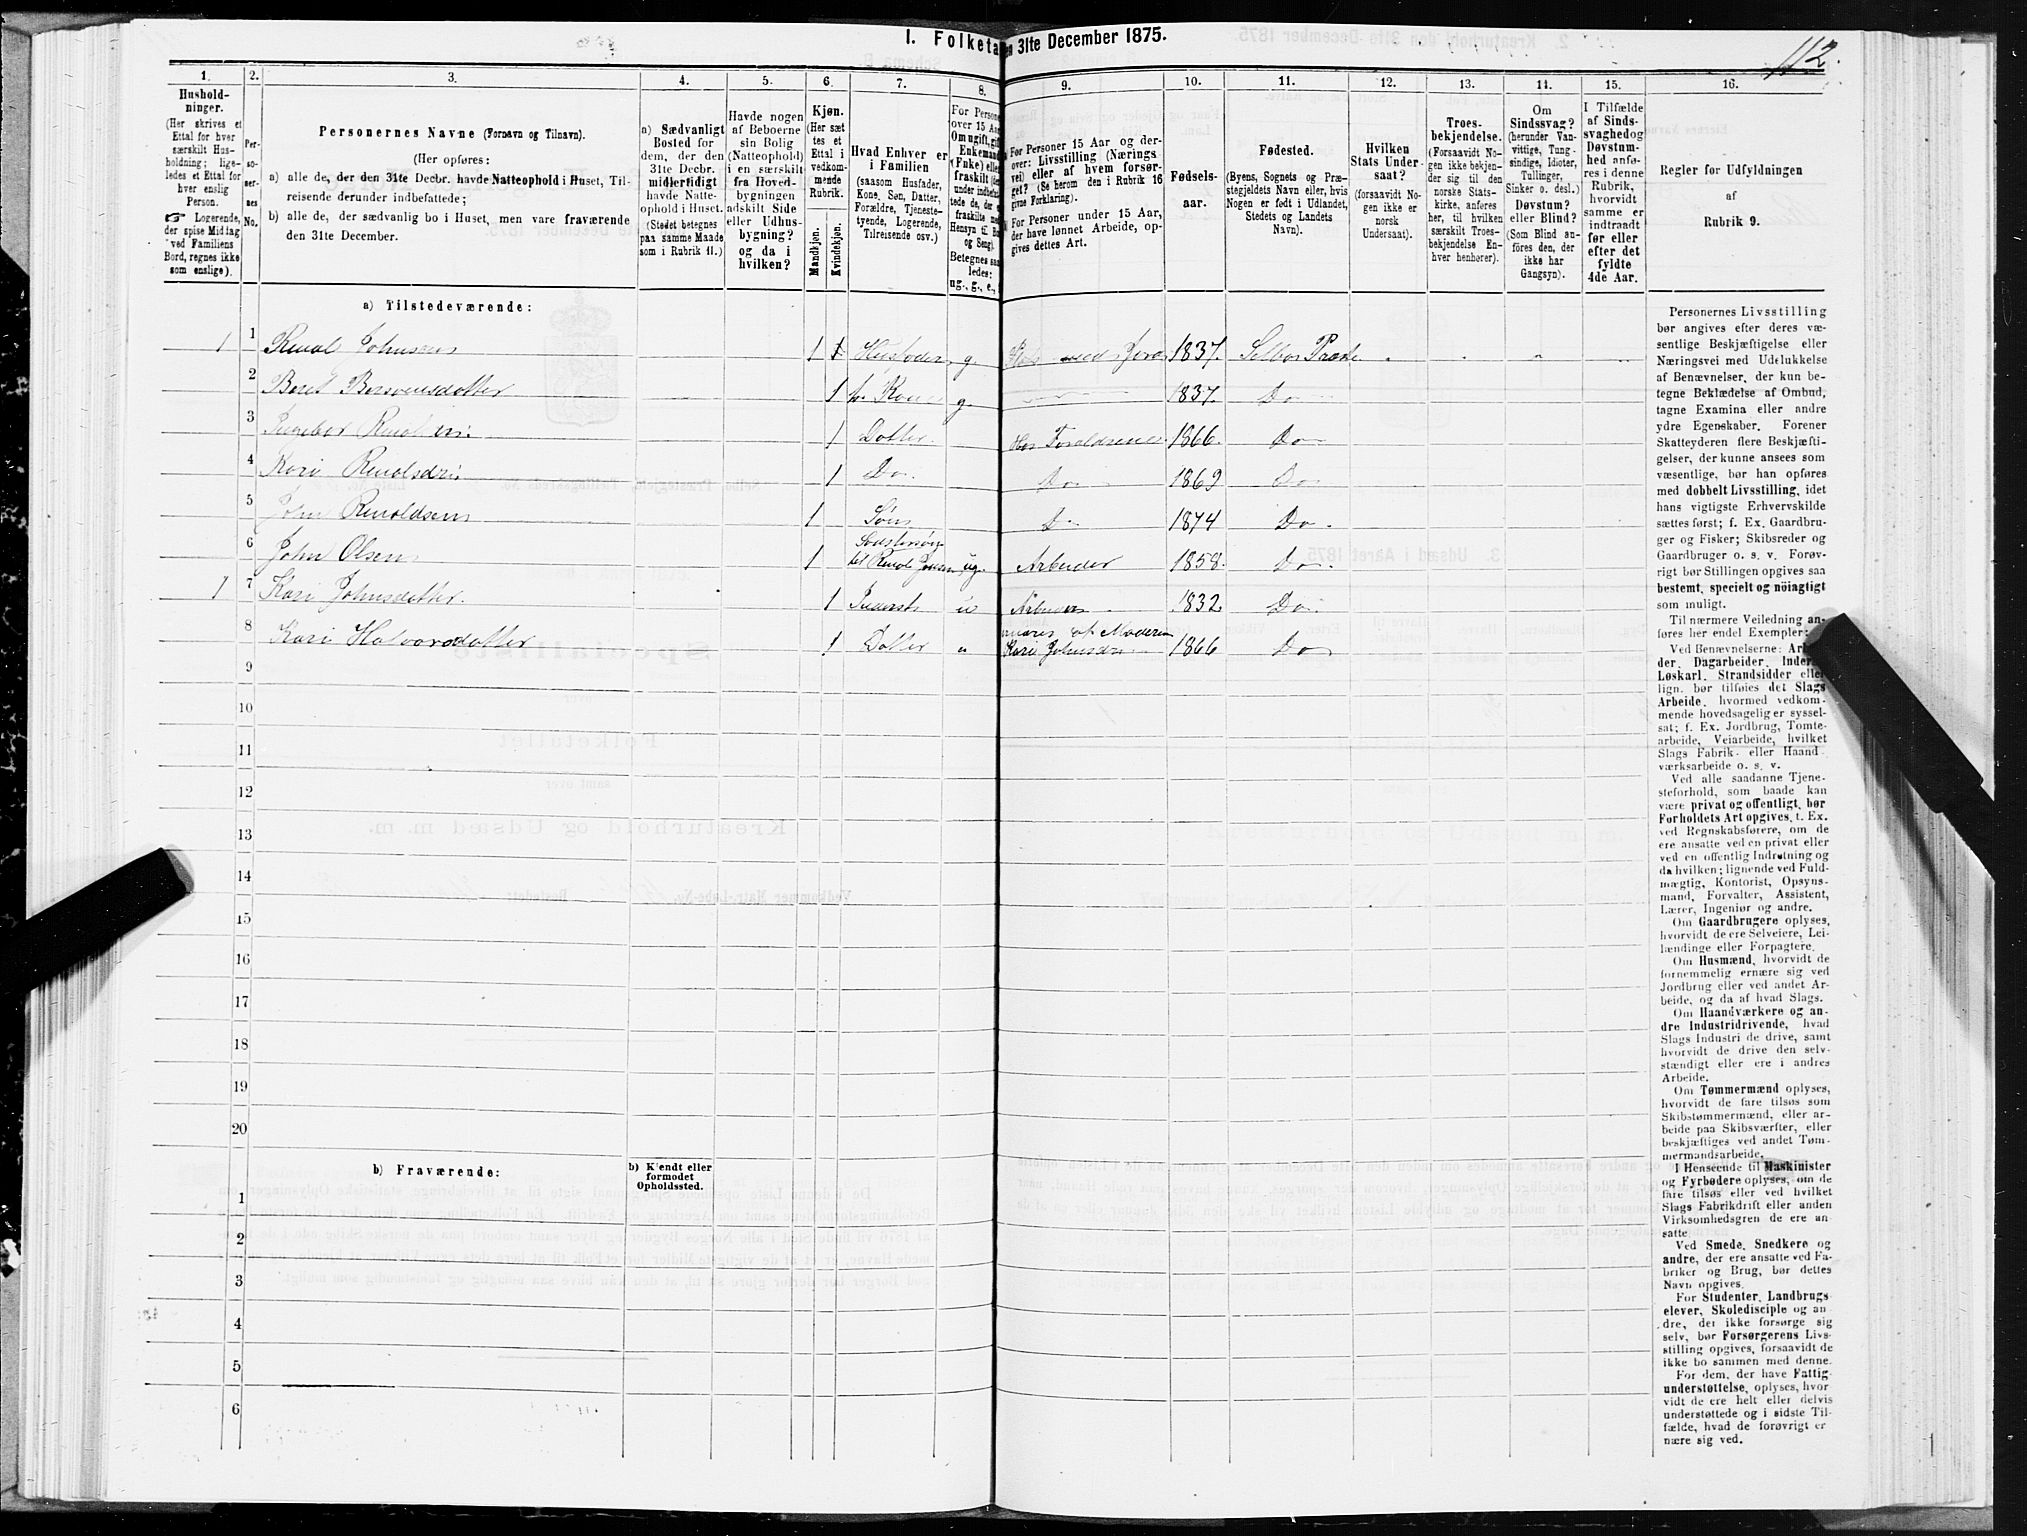 I. Folketa n 31te December 1875.
112.
1. 2. 3. 4. 5. 6. 7. 8. 9. 10. 11. 12. 13. 14. 15. 16.
Hushold-
ninger.
(Her skrives et
Ettal for hver
særskilt Hus-
holdning; lige-
ledes et Ettal for
hver enslig
Person.
☞ Logerende,
der spise Middag
ved Familiens
Bord, regnes ikke
som enslige).
Per-
so-
ner-
nes
No.
Personernes Navne (Fornavn og Tilnavn).
(Her opføres:
a) alle de, der den 31te Decbr. havde Natteophold i Huset, Til-
reisende derunder indbefattede;
b) alle de, der sædvanlig bo i Huset, men vare fraværende
den 31te December.
a) Sædvanligt
Bosted for
dem, der den
31te Decbr.
midlertidigt
havde Natte-
ophold i Huset.
(Stedet betegnes
paa samme Maade
som i Rubrik 11.)
Havde nogen
af Beboerne
sin Bolig
(Natteophold)
i en særskilt
fra Hoved-
bygningen
adskilt Side
eller Udhus-
bygning?
og da i
hvilken?
Kjøn.
(Her sæt
tes et
Ettal i
vedkom-
mende
Rubrik.
Mandkjøn.
Kvindekjøn.
Hvad Enhver er
i Familien
(saasom Husfader,
Kone, Søn, Datter,
Forældre, Tjeneste-
tyende, Logerende,
Tilreisende osv.)
For Persone
over 15 Aa
Omugift, gif
Enkemand
(Enke) elle
fraskilt (de
under indbefat
tede de, der e
fraskilte me
Hensyn til Bo
og Seng).
Betegnes saa
ledes:
ug., g., e.,
For Personer 15 Aar og der-
over: Livsstilling (Nærings
vei) eller af hvem forsør-
get? (Se herom den i Rubrik 16
givne Forklaring).
For Personer under 15 Aar,
der have lønnet Arbeide, op-
gives dettes Art.
Fødsels-
aar.
Fødested.
(Byens, Sognets og Præ-
stegjeldets Navn eller, hvis
Nogen er født i Udlandet,
Stedets og Landets
Navn).
Hvilken
Stats Under-
saat?
(forsaavidt No-
gen ikke er
norsk
Undersaat).
Troes-
bekjendelse.
(Forsaavidt No-
gen ikke bekjen-
der sig til den
norske Stats-
kirke, anføres
her, til hvilken
særskilt Troes-
bekjendelse En-
hver henhører).
Om
Sindssvag?
(herunder Van-
vittige, Tung-
sindige, Idioter,
Tullinger,
Sinker o. desl.)
Døvstum?
eller Blind?
(Som Blind an-
føres den, der
ikke har
Gangsyn).
I Tilfælde
af Sinds-
svaghed og
Døvstum-
hed anfø-
res i denne
Rubrik,
hvorvidt
samme er
indtraadt
før eller
efter det
fyldte
4de Aar.
Regler for Udfyldningen
af
Rubrik 9.
a) Tilstedeværende:
1 1 Renal Johnsen 1 Husfader g. med Jord 1837. Selbo Præst
2 Beret Bersvensdatter 1 hs. Kone g. 1837. Do
3 Ingebor 1 Dotter. Hos Foreldrene 1866. Do
4 Kari Renolsdri 1 Do. Do 1869 Do
5 John Renoldsen 1 Søn D 1874 Do.
6 John Olsen 1 Sødstersøn
til Renol Jonsen ug. Arbeider 1858. Do.
1 7 Kari Johnsdatter. 1 Inderst u Arbeider 1832. Do
8 Kari Halvorsdatter 1 Dotter " af Moderen
Kari Johnsdri 1866 Do
9
10
11
12
13
14
15
16
17
18
19
20
b) Fraværende:
b) Kendt eller
formodet
Opholdssted.
1
2
3
4
5
6
Personernes Livsstilling
bør angives efter deres væ-
sentlige Beskjæftigelse eller
Næringsvei med Udelukkelse
af Benævnelser, der kun be-
tegne Beklædelse af Ombud,
tagne Examina eller andre
ydre Egenskaber. Forener
Skatteyderen flere Beskjæfti-
gelser, der kunne ansees som
væsentlige, bør han opføres
med dobbelt Livsstilling, idet
hans vigtigste Erhvervskilde
sættes først; f. Ex. Gaardbru-
ger og Fisker; Skibsreder og
Gaardbruger o. s. v. Forøv-
rigt bør Stillingen opgives saa
bestemt, specielt og nöiagtigt
som muligt.
Til nærmere Veiledning an-
føres her endel Exempler:
Ved Benævnelserne: Ar
der, Dagarbeider, Inder
Løskarl, Strandsidder elle
lign. bør tilføies det Slags
Arbeide, hvormed vedkom-
mende hovedsagelig er syssel-
sat; f. Ex. Jordbrug, Tomte-
arbeide, Veiarbeide, hvilket
Slags Fabrik- eller Haand
værksarbeide o. s. v.
Ved alle saadanne Tjene-
steforhold, som baade kan
være privat og offentligt, bør
Forholdets Art opgives, t. Ex.
ved Regnskabsførere, om de
ere ansatte ved en privat eller
ved en offentlig Indretning og
da hvilken; lignende ved Fuld-
mægtig, Kontorist, Opsyns-
mand, Forvalter, Assistent,
Lærer, Ingeniør og andre.
Om Gaardbrugere oplyses,
hvorvidt de ere Selveiere, Lei-
lændinge eller Forpagtere.
Om Husmænd, hvorvidt de
fornemmelig ernære sig ved
Jordbrug eller ved andet Ar-
beide, og da af hvad Slags.
Om Haandværkere og an-
dre Industridrivende, hvad
Slags Industri de drive, samt
hvorvidt de drive den selv-
stændigt eller ere i andres
Arbeide.
Om Tømmermænd oplyses,
hvorvidt de fare tilsøs som
Skibstømmermænd, eller ar-
beide paa Skibsværfter, eller
beskjæftiges ved andet Tøm-
mermandsarbeide.
I Henseende til Maskinister
og Fyrbødere oplyses, om de
fare tilsøs eller ved hvilket
Slags Fabrikdrift eller anden
Virksomhedsgren de ere an-
satte.
Ved Smede, Snedkere og
andre, der ere ansatte ved Fa-
briker og Brug, bør dettes
Navn opgives.
For Studenter, Landbrugs
elever, Skoledisciple og an-
dre, der ikke forsørge sig
selv, bør Forsørgerens Livs-
stilling opgives, forsaavidt de
ikke bo sammen med denne.
For dem, der have Fattig-
understøttelse, oplyses, hvor
vidt de ere helt eller delvis
understøttede og i sidste Til-
fælde, hvad de forøvrigt er
nære sig ved.